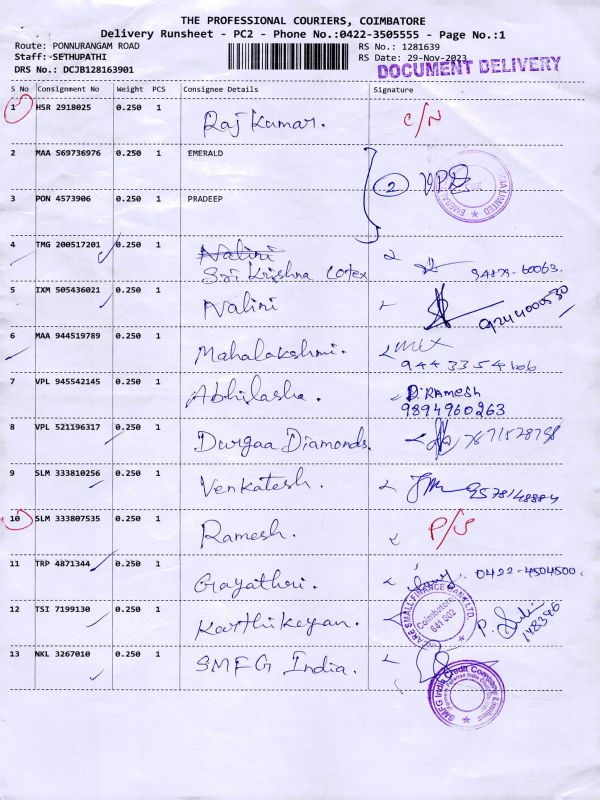 THE PROFESSIONAL COURIERS, COIMBATORE
Delivery Runsheet - PC2 - Phone No.:0422-3505555 - Page No.:1
Route: PONNURANGAM ROAD RS No.: 1281639
Staff: SETHUPATHI RS Date: 29-Nov-2023
DRS No.: DCJB128163901 DOCUMENT DELIVERY
S No Consignment No Weight PCS Consignee Details Signature
1 HSR 2918025 0.250 1 Raj Kumar. C/N
2 MAA 569736976 0.250 1 EMERALD
2
3 PON 4573906 0.250 1 PRADEEP
4 TMG 200517201 0.250 1 Nalini
Sri Krishna Cotex 94879-60063.
5 IXM 505436021 0.250 1 Nalini
6 MAA 944519789 0.250 1 Mahalakshmi.
7 VPL 945542145 0.250 1 Abhilasha. D.RAMESH
9894960263
8 VPL 521196317 0.250 1 Durgaa Diamonds.
9 SLM 333810256 0.250 1 Venkatesh.
10 SLM 333807535 0.250 1 Ramesh. P/S
11 TRP 4871344 0.250 1 Gayathri. 0422-4504500.
12 TSI 7199130 0.250 1 Karthikeyan. SMALL FINANCE BANK LTD.
Coimbatore
641 002
148396
13 NKL 3267010 0.250 1 SMFG India.
SMFG India Credit Company Limited